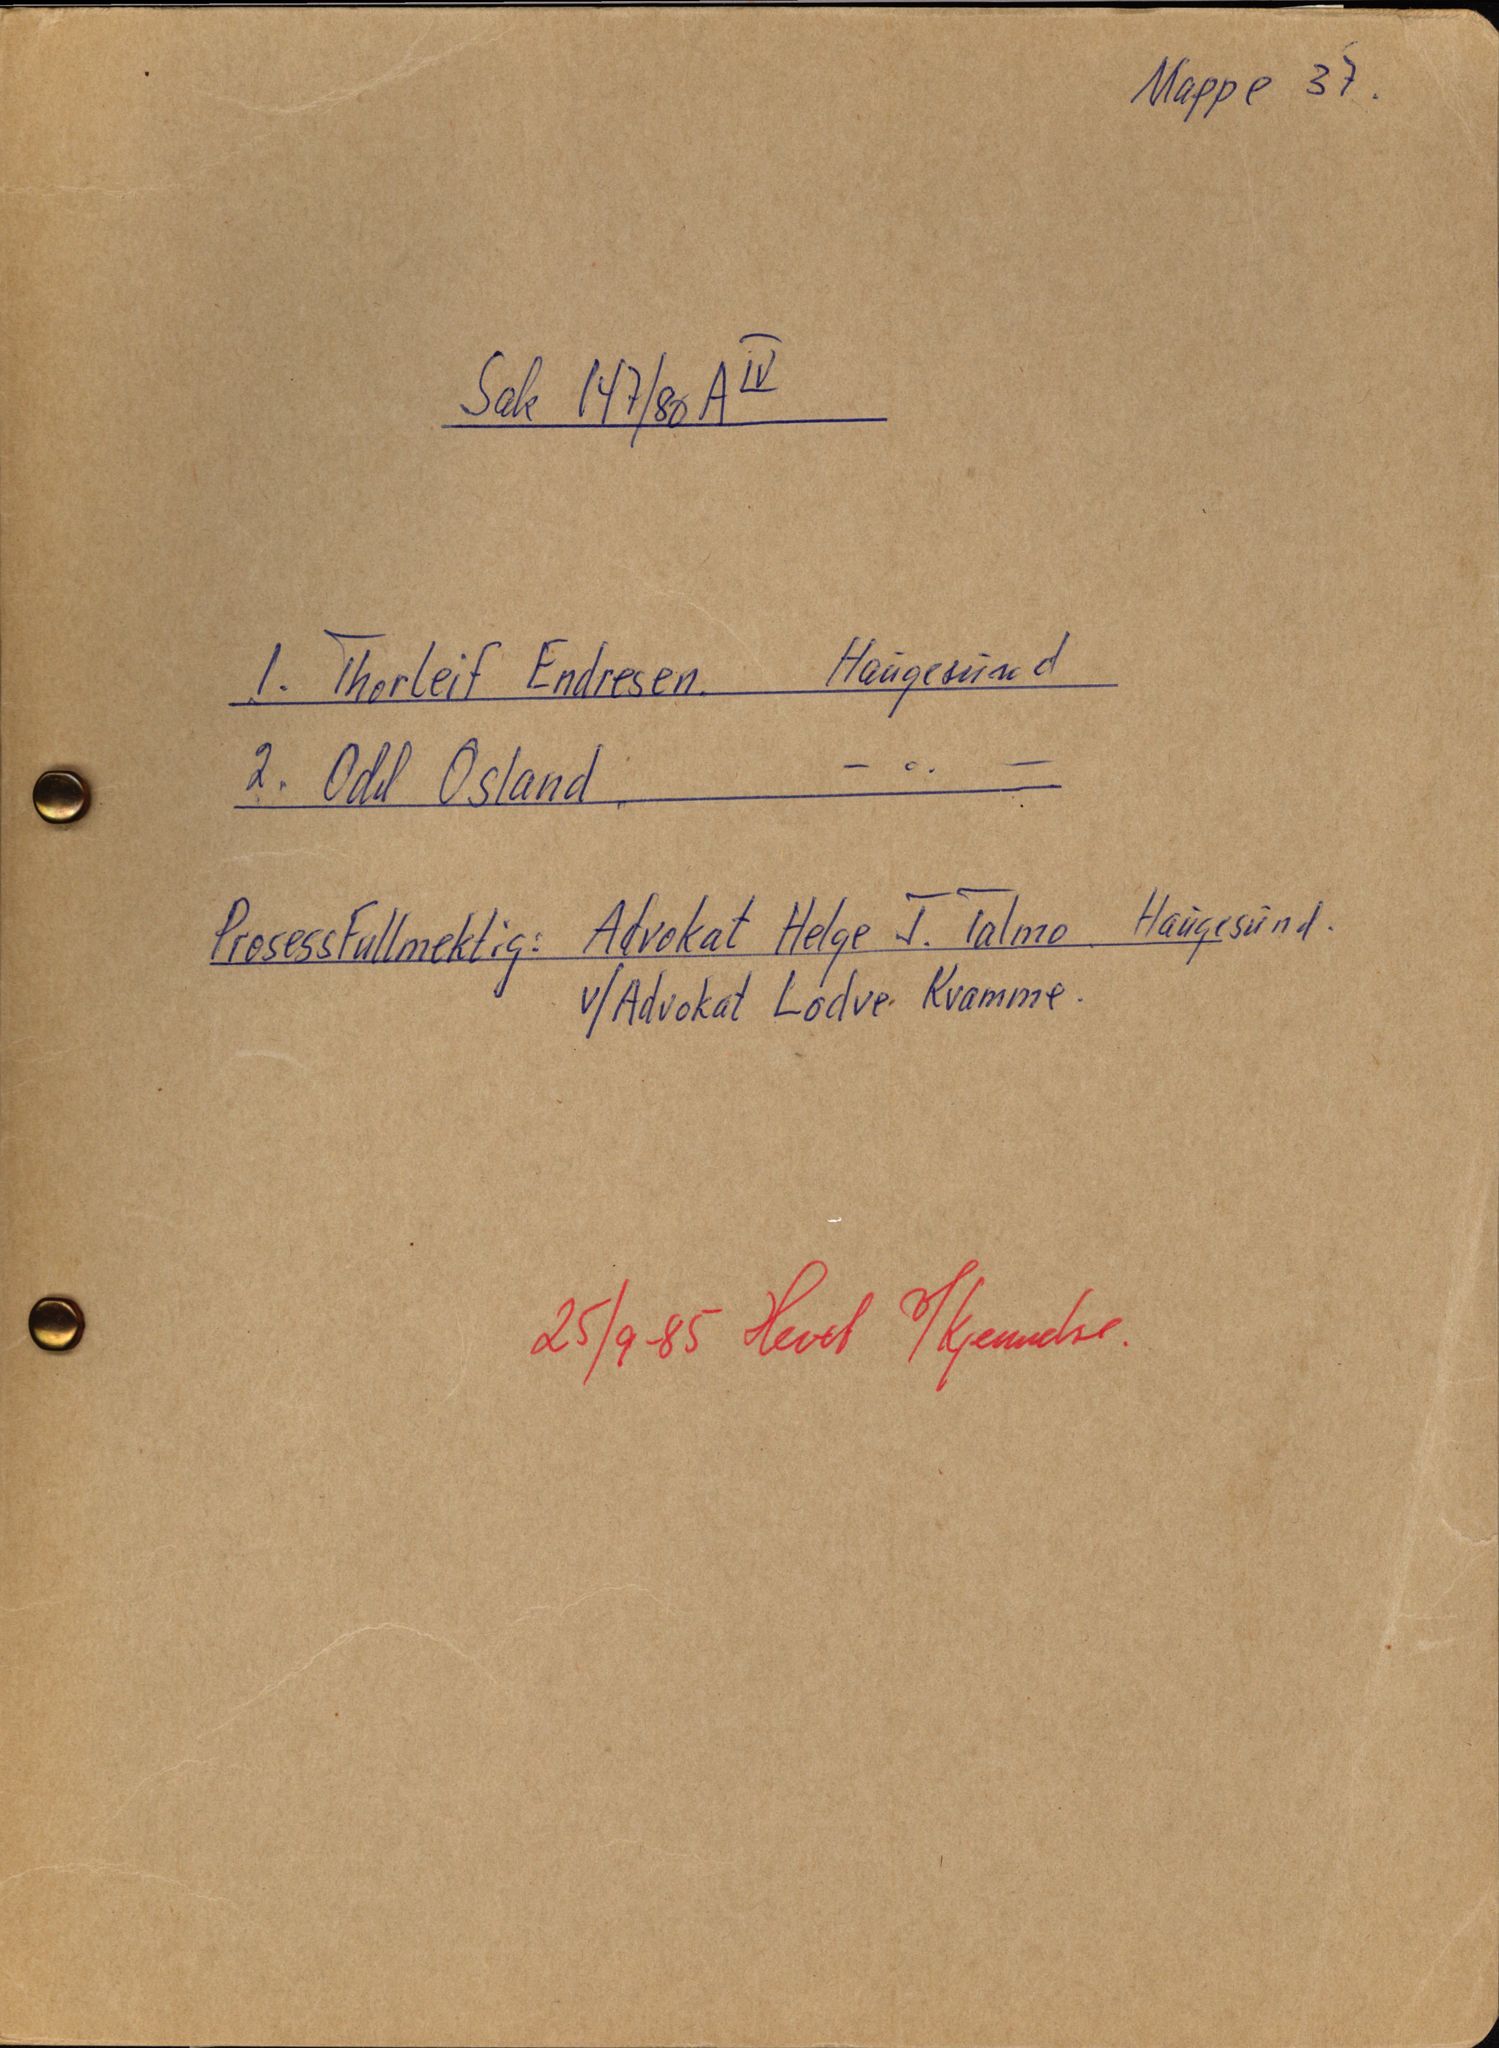 Mappe 37.
Sak 147/80 A IV
1. Thorleif Endresen. Haugesund
2. Odd Osland. - ". -
Prosessfullmektig: Advokat Helge J. Talmo. Haugesund.
v/Advokat Lodve Kvamme.
25/9-85 Hevet v/kjennelse.